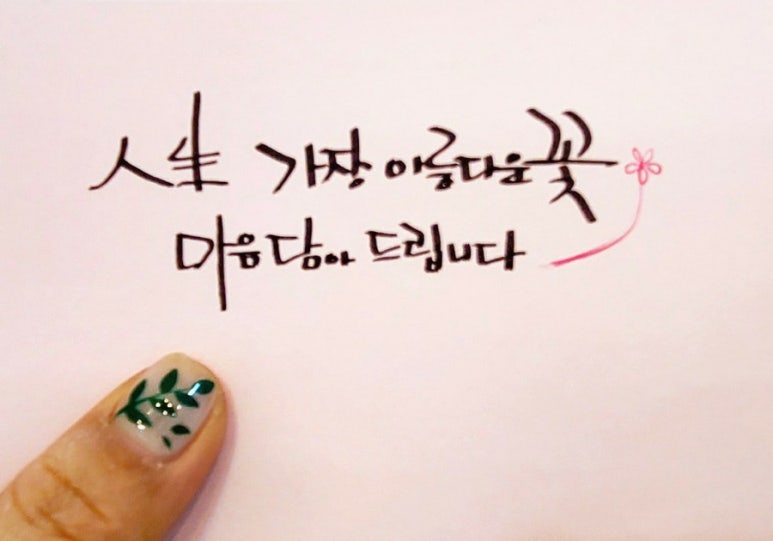 人生 가장 아름다운 꽃
마음 담아 드립니다